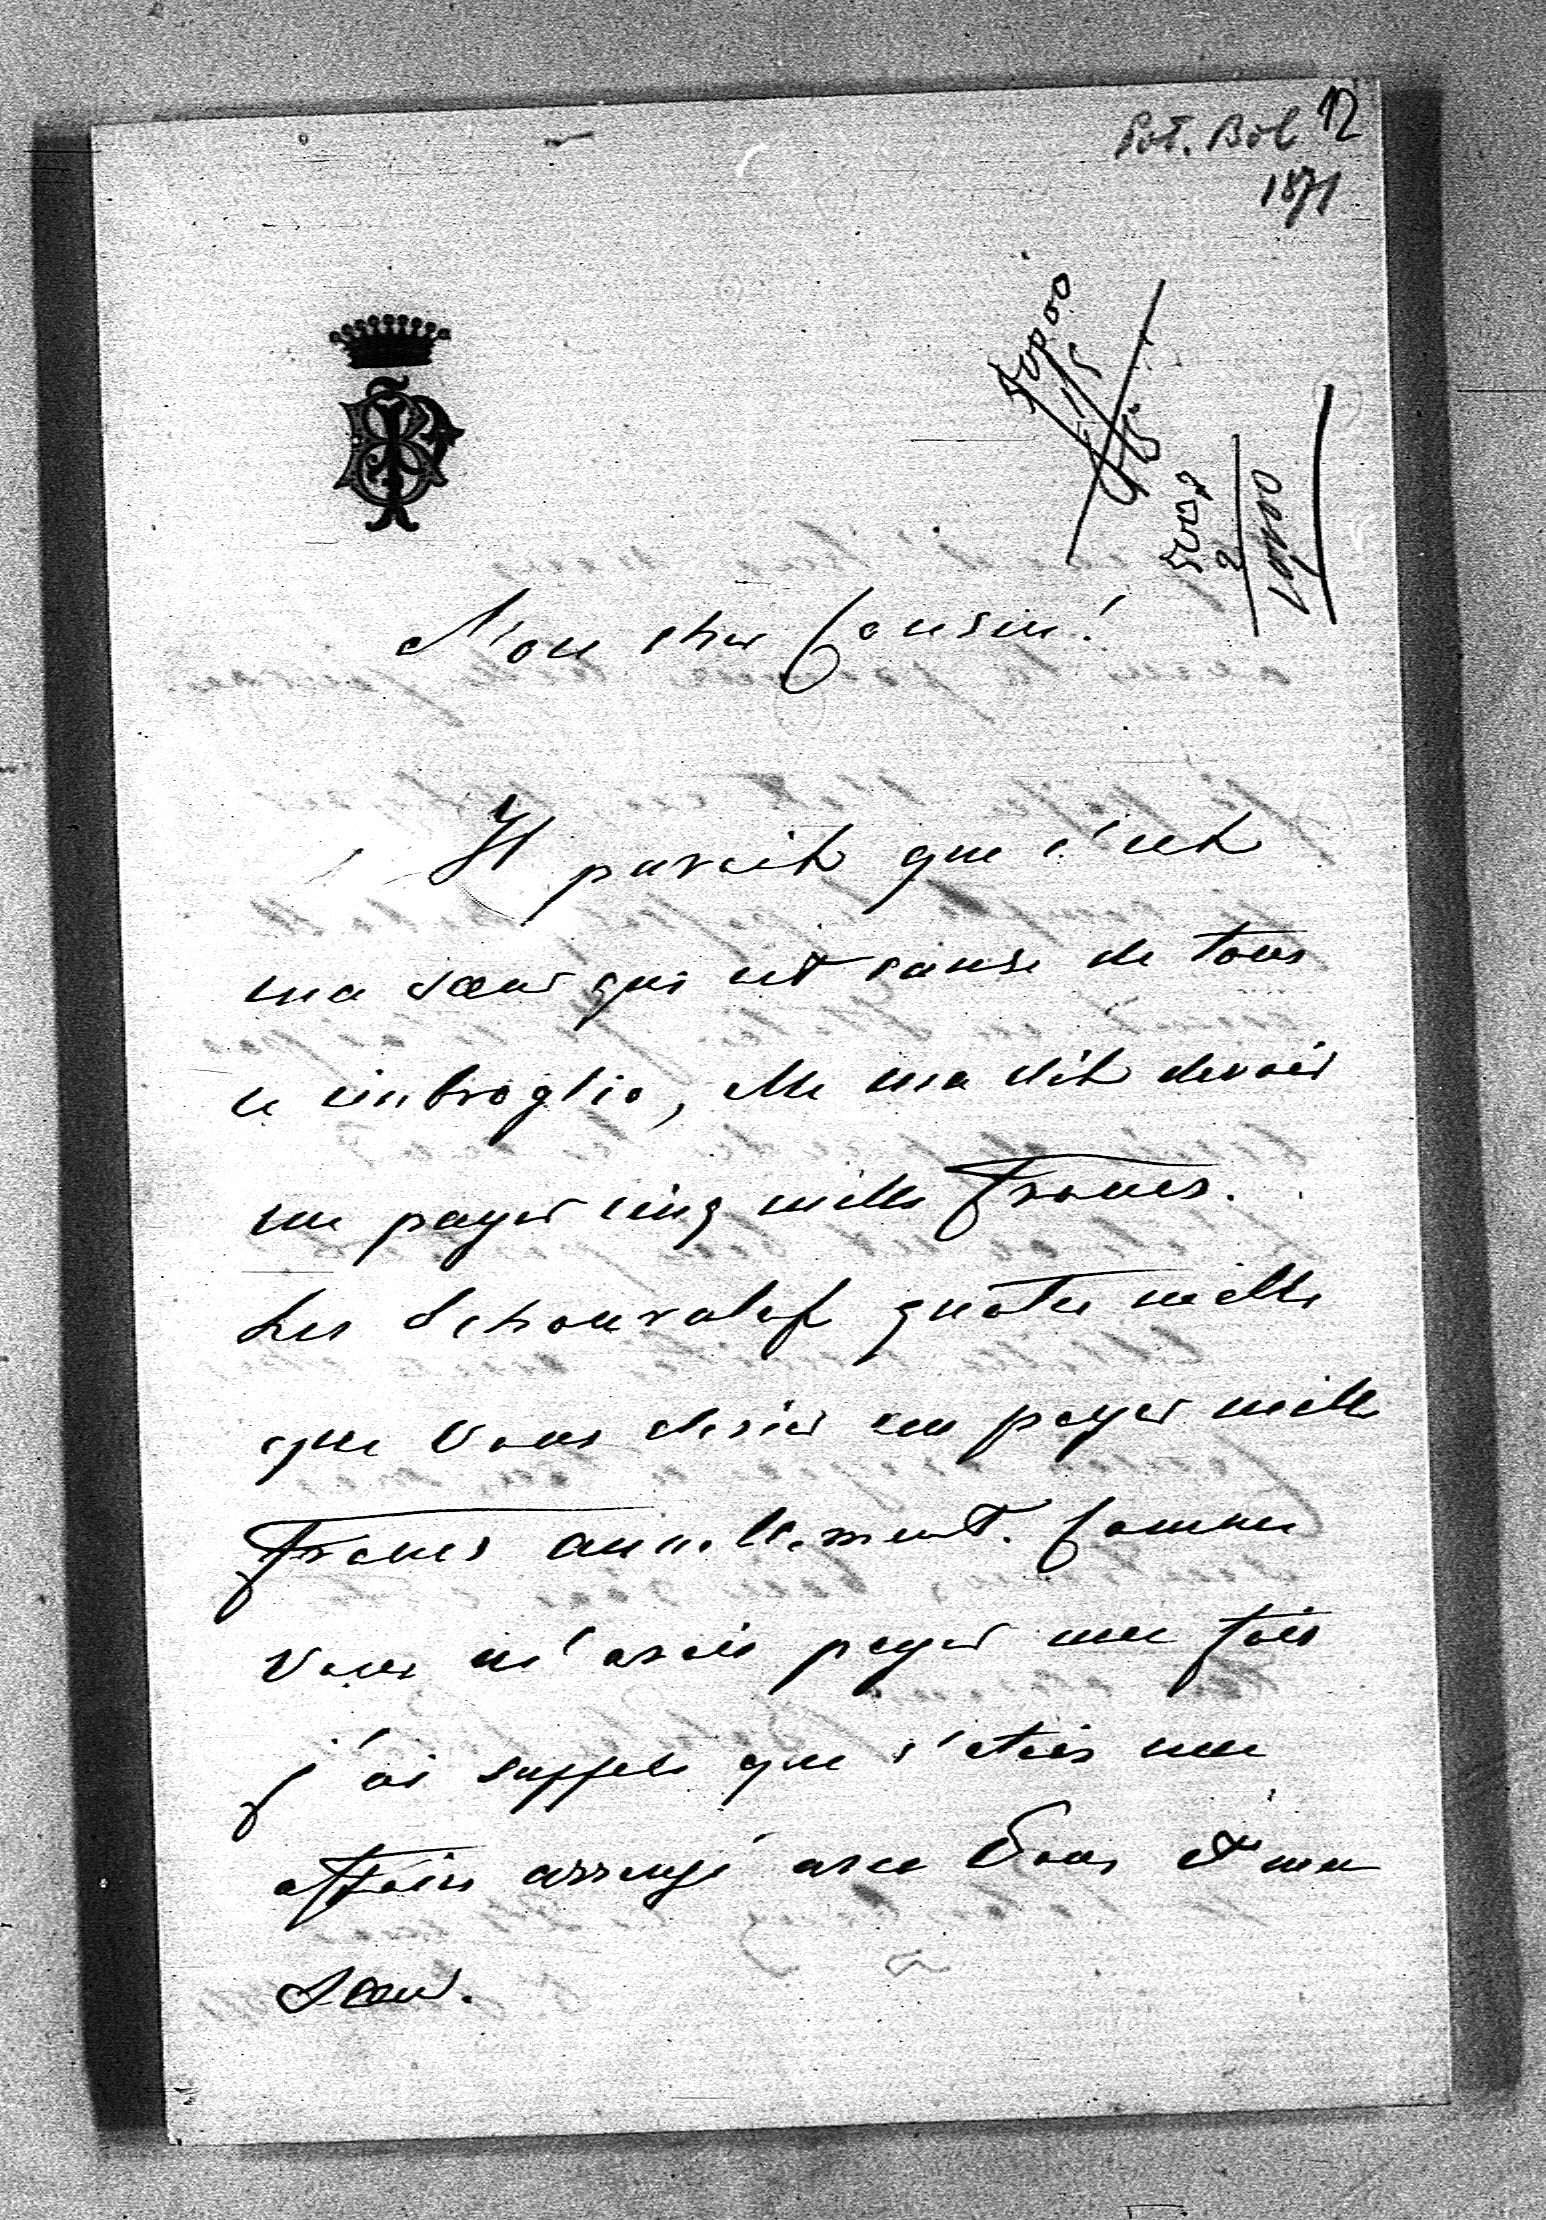 Pot. Bol 12
1871
5000
2
Mon cher Cousin!
Il parait que c'est
ma sœur qui est cause de tous
ce imbroglio, elle ma dit devoir
me payer cinq mille francs.
Les Schouvalof quatre mille
que Vous devier me payer mille
francs annuellement. Comme
vous m'avais payer une fois
j'ai supposé que s'etais une
affaire arrengé avec Vous et ma
sœur.